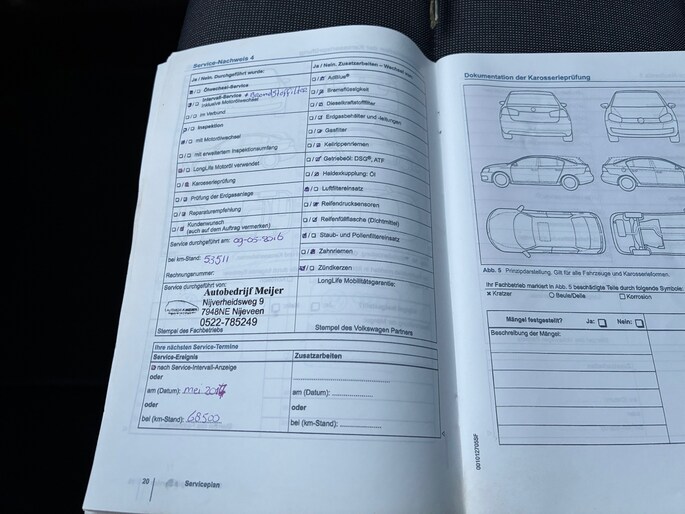 Service-Nachweis 4
Ja / Nein. Durchgeführt wurde:
Ölwechsel-Service
Intervall-Service + Brandstoffilter
inklusive Motorölwechsel
im Verbund
Inspektion
mit Motorölwechsel
mit erweitertem Inspektionsumfang
LongLife Motoröl verwendet
Karosserieprüfung
Prüfung der Erdgasanlage
Reparaturempfehlung
Kundenwunsch
(auch auf dem Auftrag vermerken)
Service durchgeführt am: 09-05-2016
bei km-Stand: 53511
Rechnungsnummer:
Service durchgeführt von:
Autobedrijf Meijer
Nijverheidsweg 9
7948NE Nijeveen
0522-785249
Stempel des Fachbetriebs
Ja / Nein. Zusatzarbeiten – Wechsel von:
AdBlue®
Bremsflüssigkeit
Dieselkraftstofffilter
Erdgasbehälter und -leitungen
Gasfilter
Keilrippenriemen
Getriebeöl: DSG®, ATF
Haldexkupplung: Öl
Luftfiltereinsatz
Reifendrucksensoren
Reifenfüllflasche (Dichtmittel)
Staub- und Pollenfiltereinsatz
Zahnriemen
Zündkerzen
LongLife Mobilitätsgarantie:
Stempel des Volkswagen Partners
Ihre nächsten Service-Termine
Service-Ereignis
nach Service-Intervall-Anzeige
oder
am (Datum): mei 2017
oder
bei (km-Stand): 68500
Zusatzarbeiten
am (Datum):
oder
bei (km-Stand):
20
Serviceplan
Dokumentation der Karosserieprüfung
Abb. 5 Prinzipdarstellung. Gilt für alle Fahrzeuge und Karosserieformen.
Ihr Fachbetrieb markiert in Abb. 5 beschädigte Teile durch folgende Symbole:
× Kratzer
○ Beule/Delle
□ Korrosion
Mängel festgestellt?
Ja:
Nein:
Beschreibung der Mängel: